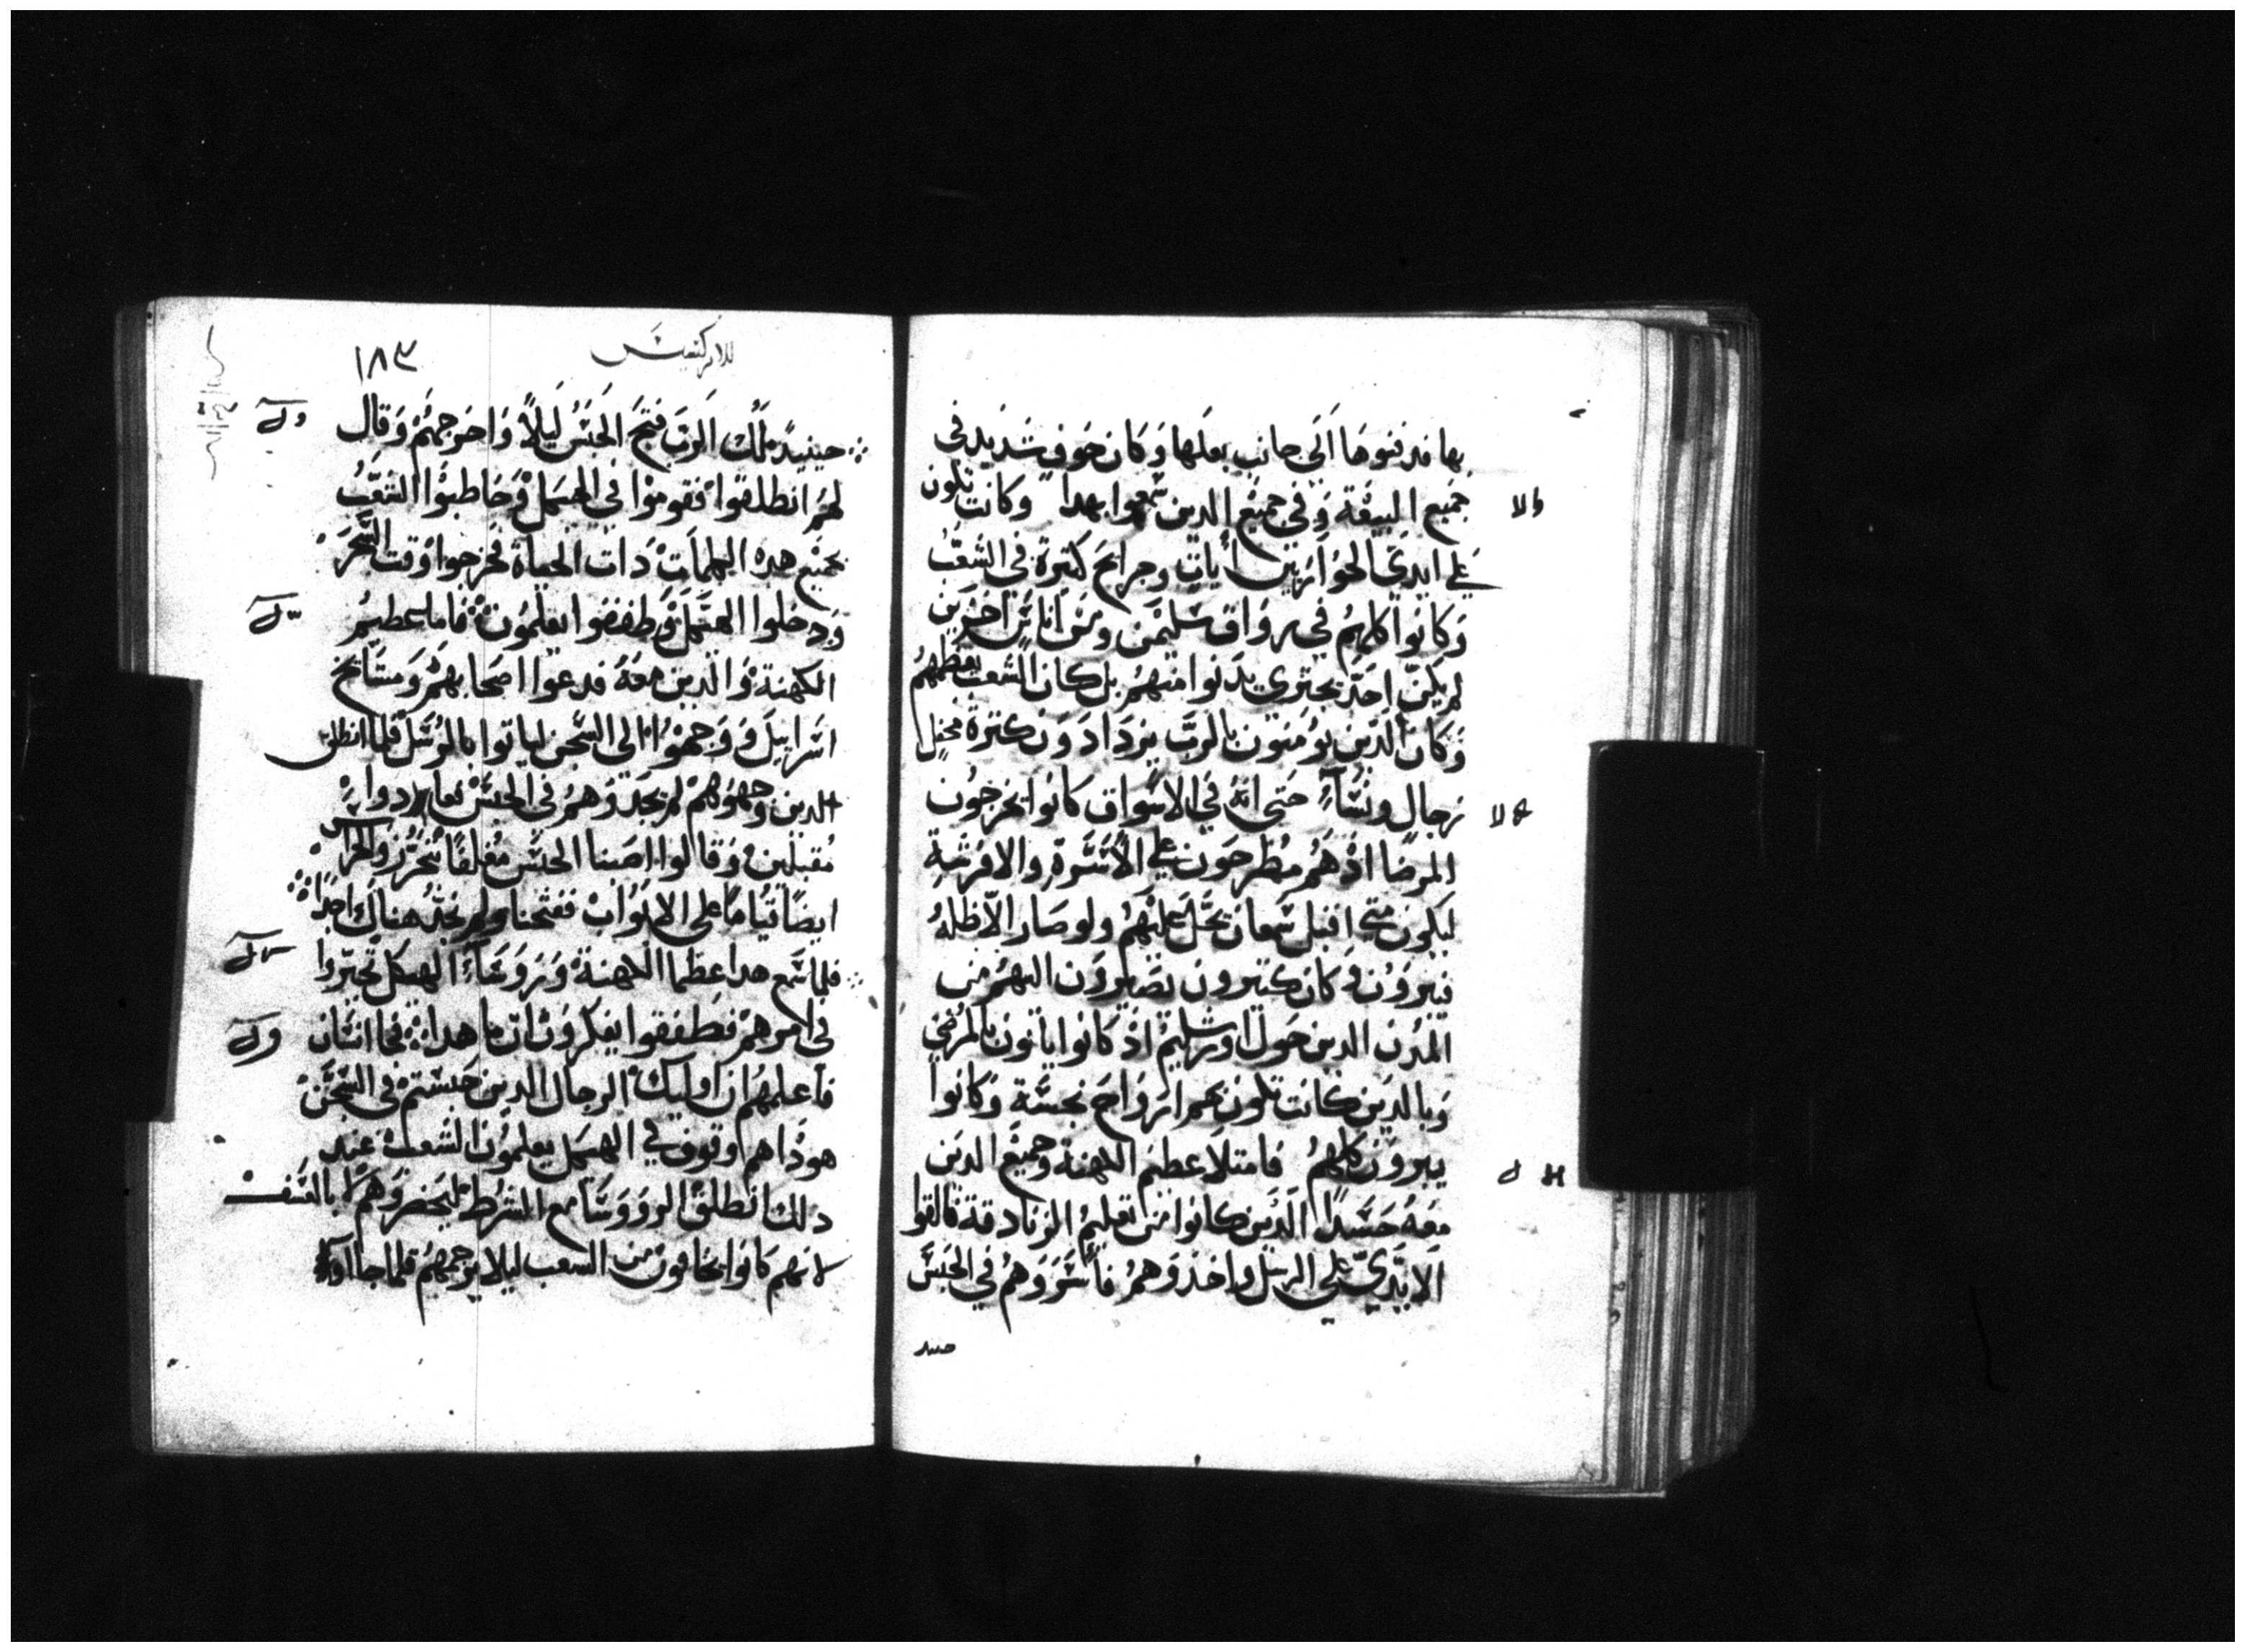 بها فدفنوها الى جانب بعلها وكان خوف شديد في
جميع البيعة وفي جميع الدين سمعوا بهدا وكانت تكون
على ايدي الحواريين ايات وجرايح كتيرة في الشعب
وكانوا كلهم في رواق سليمن ومن اناس اخرين
لم يكن احد يجتري يدنوا منهم بل كان الشعب يعظمهم
وكان الدين يومنون بالرب يزدادون كترة محفل
رجال ونساء حتى انه في الاسواق كانوا يخرجون
المرضا اذ هم مطرحون على الاسرة والافرشة
ليكون متى اقبل سمعان يحل عليهم ولو صار الا ظله
فيبروون وكان كتيرون يصيرون اليهم من
المدن الدين حول اورشليم اذ كانوا ياتون بالمرضى
وبالدين كانت تكون بهم ارواح نجسة وكانوا
يبرون كلهم فامتلا عظيم الكهنة وجميع الدين
معه حسدا الدين كانوا من تعليم الزنادقة فالقوا
الايدي على الرسل واخذوهم فاسروهم في الحبس
حينيد
للابركسيس
١٨٣
حينيد ملك الرب فتح الحبس ليلا واخرجهم وقال
لهم انطلقوا فقوموا في الهيكل وخاطبوا الشعب
بجميع هده الكلمات دات الحياة فخرجوا وقت السحر
ودخلوا الهيكل وطفقوا يعلمون فاما عظيم
الكهنة والدين معه فدعوا اصحابهم ومشايخ
اسراييل ووجهوا الى السجن لياتوا بالرسل فلما انطلق
الدين وجهوهم لم يجدوهم في الحبس فعادوا
مقبلين وقالوا اصبنا الحبس مغلقا بتحرز والحراس
ايضا قياما على الابواب ففتحنا ولم نجد هناك احدا
فلما سمع هدا عظما الكهنة وروساء الهيكل تحيروا
في امرهم فطفقوا يفكرون ان ما هدا فجا انسان
فاعلمهم ان اوليك الرجال الدين حبستم في السجن
هوداهم وقوف في الهيكل يعلمون الشعب عند
دلك انطلق الروسا مع الشرط ليحضروهم لا بالعنف
لانهم كانوا يخافون من الشعب ليلا يرجمهم فلما جاآوا